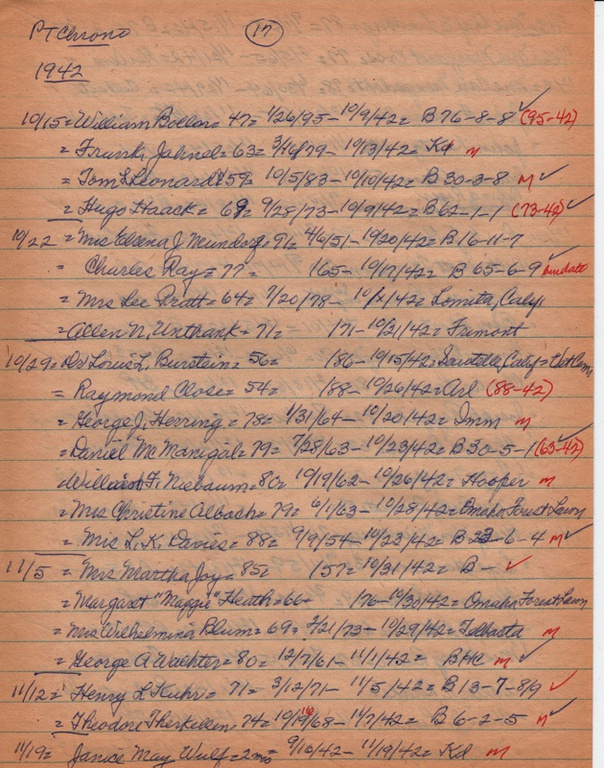 PT Chrono 17
1942
10/15 = William Boller = 47 = 1/26/95 - 10/9/42 = B 76-8-8 ✓ (95-42)
= Frank Jahnel = 63 = 3/16/79 - 10/13/42 = Kd m
= Tom L Leonard = 59 = 10/5/83 - 10/10/42 = B 30-3-8 m ✓
= Hugo Haack = 69 = 9/28/73 - 10/9/42 = B 62-1-1 (73-42) ✓
10/22 = Mrs J = 91 = 4/6/51 - 10/20/42 = B 16-11-7
= Charles Ray = 77 = 165 - 10/17/42 = B 65-6-9 ✓
= Mrs Lee Pratt = 64 = 7/20/78 - 42 = Lomita, Caly
= Allen N. Unthank = 71 = 171 - 10/21/42 = Fremont
10/29 = Dr Louis L. Burstein = 56 = 186 - 10/15/42 = Sawtelle, Caly =
= Raymond Close = 54 = 188 - 10/26/42 = Arl (88-42)
= George J. Herring = 78 = 1/31/64 - 10/20/42 = Imm m
= Daniel McManigal = 79 = 7/28/63 - 10/23/42 = B 30-5-1 (63-42) ✓
= William F. Niebaum = 80 = 10/19/62 - 10/26/42 = Hooper m
= Mrs Christine Albach = 79 = 6/1/63 - 10/28/42 = Omaha Forest Lawn
= Mrs L. K. Davies = 88 = 9/9/54 - 10/23/42 = B 23-6-4 m ✓
11/5 = Mrs Martha Joy = 85 = 157 = 10/31/42 = B - ✓
= Margaret "Maggie" Heath = 66 - 176 - 10/30/42 = Omaha Forest Lawn
= Mrs Wilhelmina Blum = 69 = 2/21/73 - 10/29/42 = Telbasta m
= George A Wachter = 80 = 12/7/61 - 11/1/42 = BHC m ✓
11/12 = Henry L Kuhr = 71 = 3/12/71 - 11/5/42 = B 13-7-8/9 ✓
= Theodore Therkelsen, 74 = 10/19/68 - 11/7/42 = B 6-2-5 m ✓
11/19 = Janice May Wulf = 2 mo = 9/16/42 - 11/19/42 = Kd m